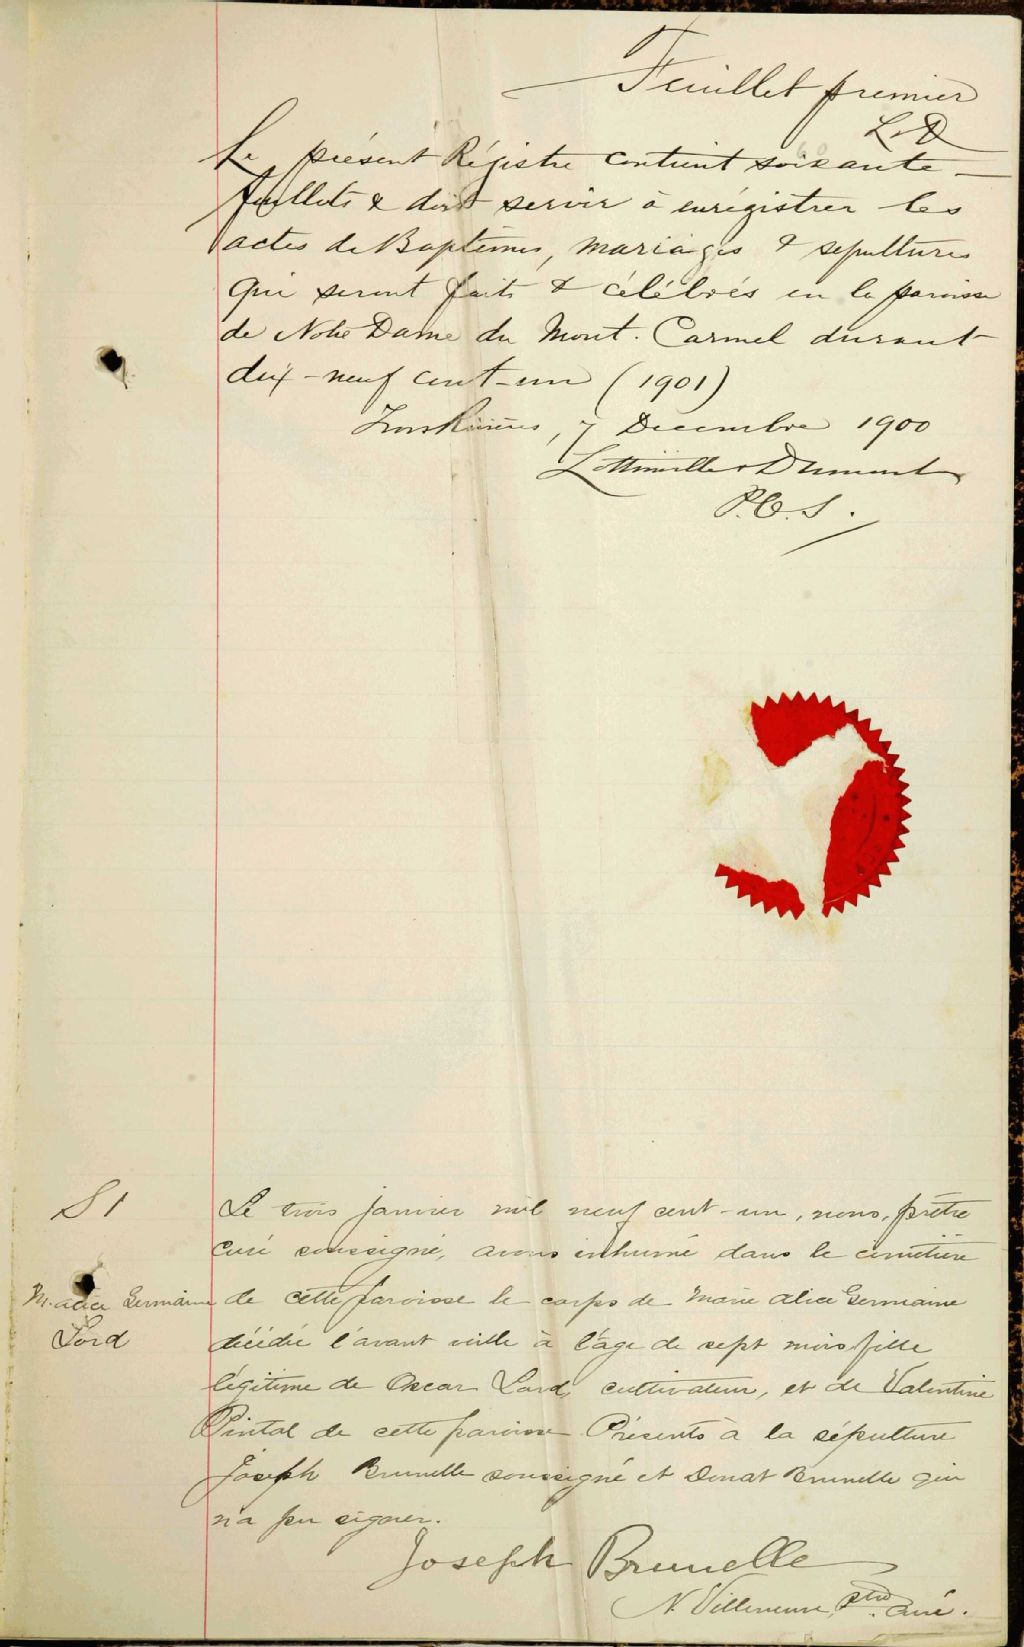 Feuillet premier
L & D
Le présent Régistre contient soixante
feuillets & doit servir à enrégistrer les
actes de Baptêmes, mariages & sepultures
qui seront faits & célébrés en la paroisse
de Notre Dame du Mont. Carmel durant
dix-neuf cent-un (1901)
Trois Rivières, 7 Decembre 1900
Lottinville & Dumont
P.C.S.
S 1
M. Alice Germaine
Lord
Le trois janvier mil neuf cent-un, nous, prêtre
curé soussigné, avons inhumé dans le cimetière
de cette paroisse le corps de Marie Alice Germaine
décédée l'avant veille à l'âge de sept mois fille
légitime de Oscar Lord, cultivateur, et de Valentine
Pintal de cette paroisse Présents à la sépulture
Joseph Brunelle soussigné et Donat Brunelle qui
n'a pu signer.
Joseph Brunelle
N. Villeneuve, ptre curé.